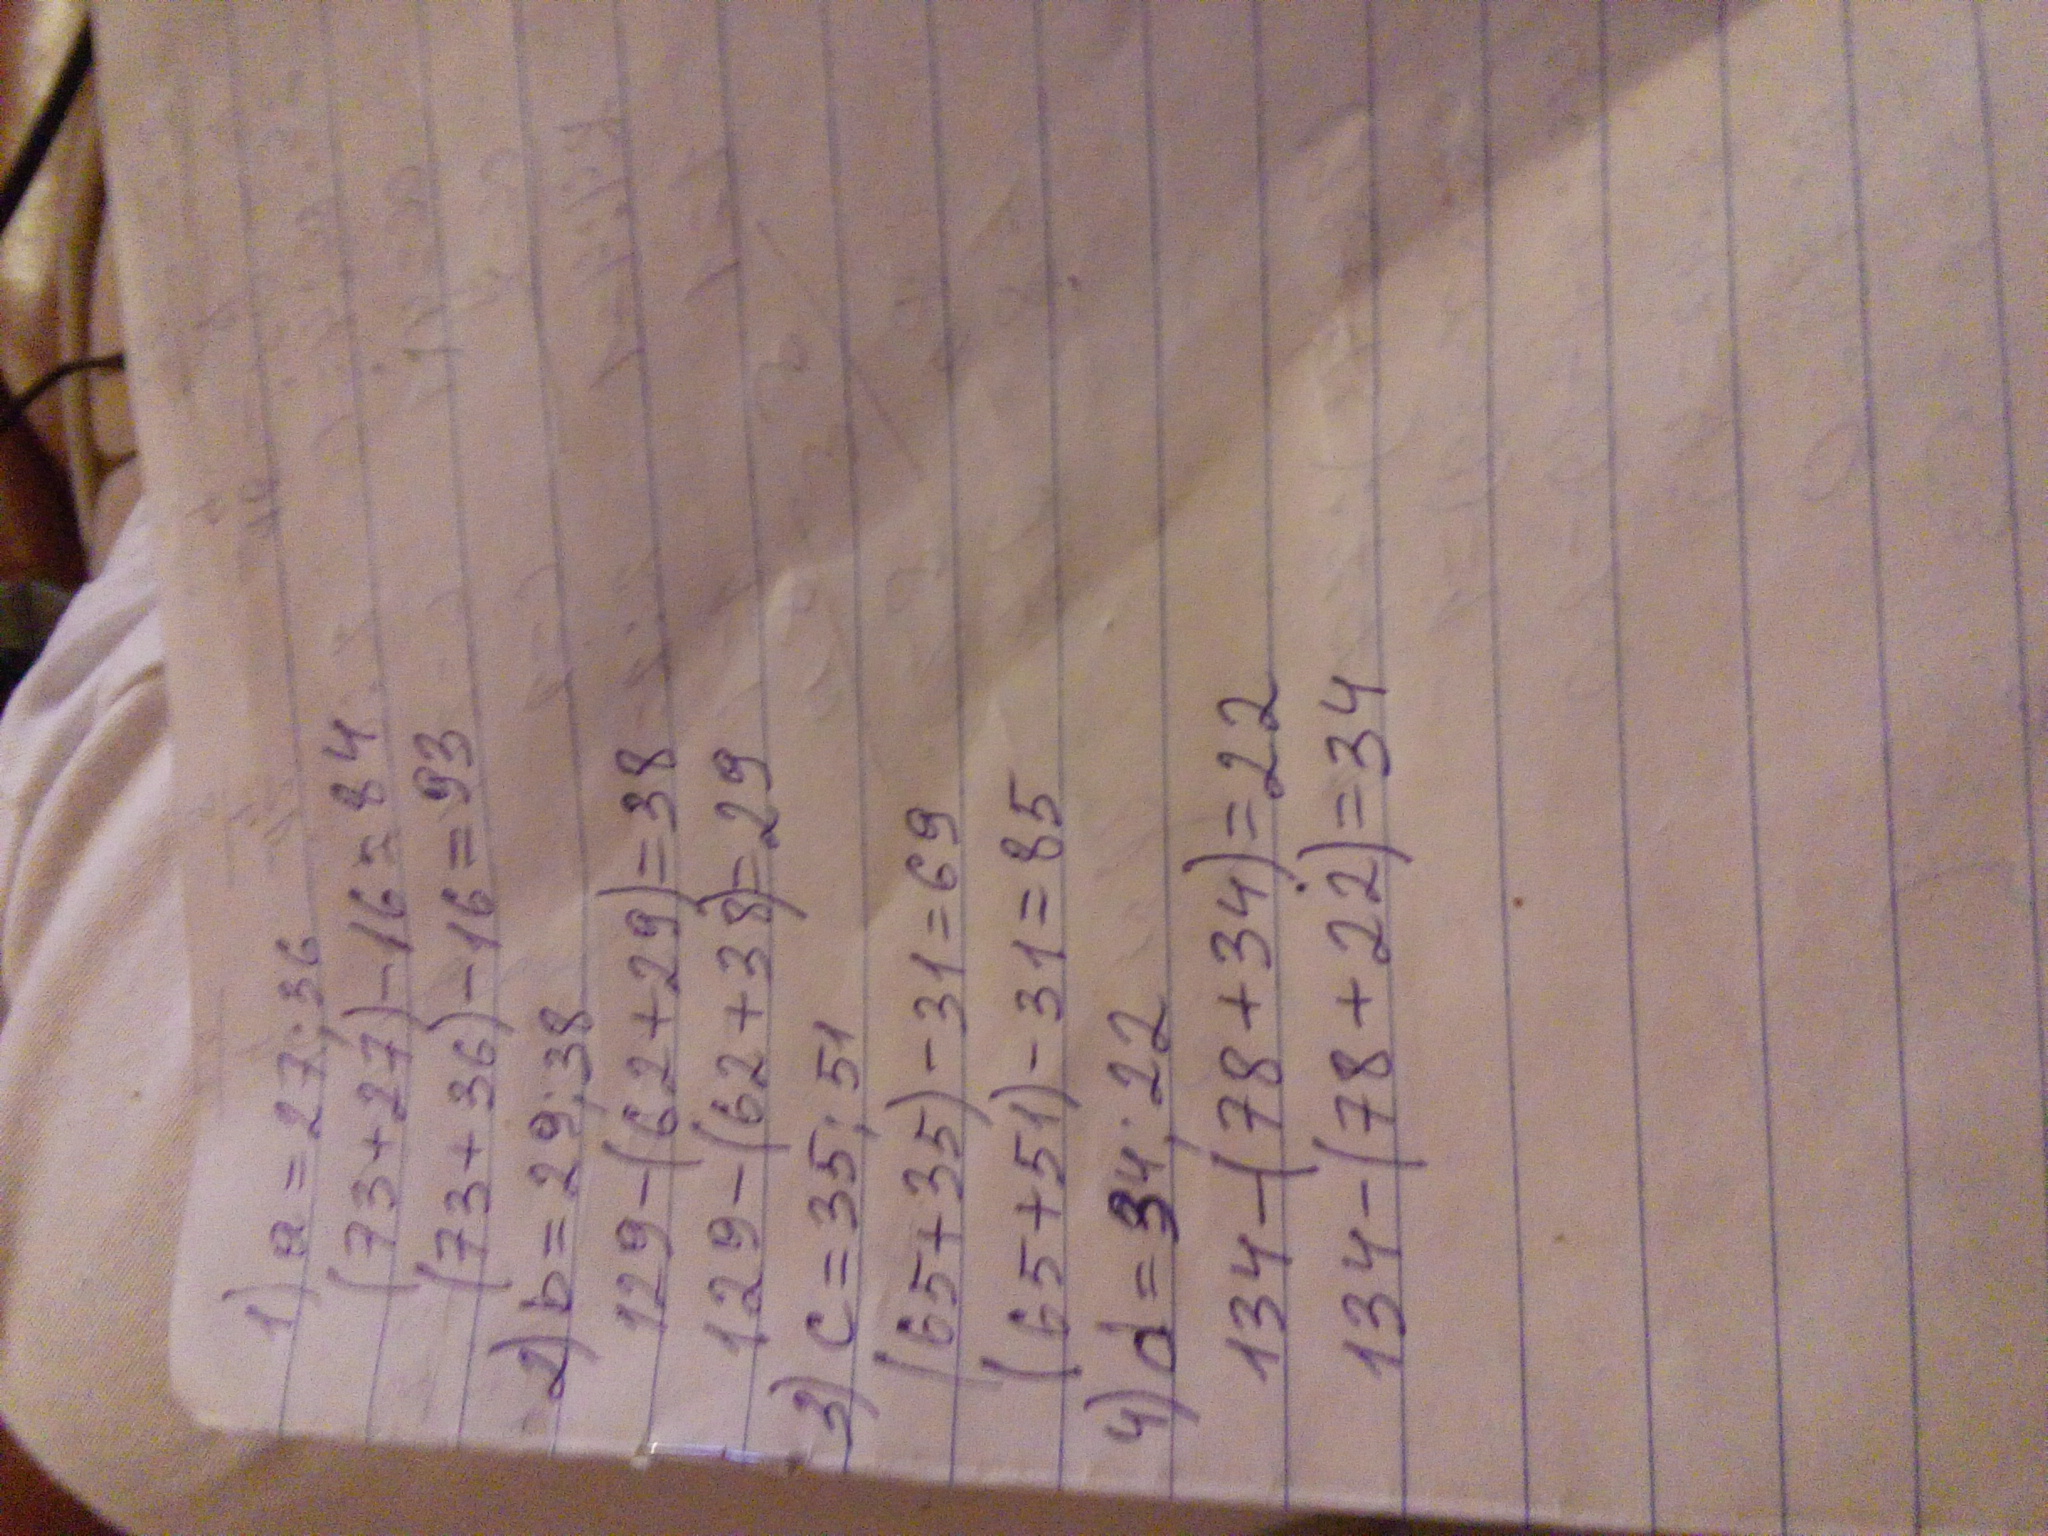 1) a = 27; 36
(73+27)-16=84
(73+36)-16=93
2) b = 29; 38
129-(62+29)=38
129-(62+38)=29
3) c = 35; 51
(65+35)-31=69
(65+51)-31=85
4) d = 34; 22
134-(78+34)=22
134-(78+22)=34